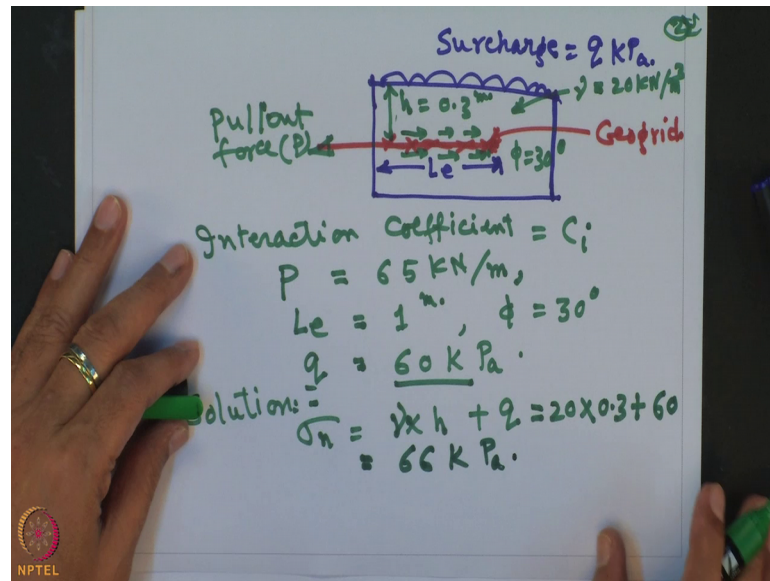 Surcharge = q kPa.
h = 0.3 m
γ = 20 KN/m³
Pullout
force (P)
Geogrid
Le
φ = 30°
Interaction Coefficient = Ci
P = 65 KN/m,
Le = 1 m. , φ = 30°
q = 60 K Pa.
Solution:-
σn = γ x h + q = 20 x 0.3 + 60
= 66 K Pa.
NPTEL